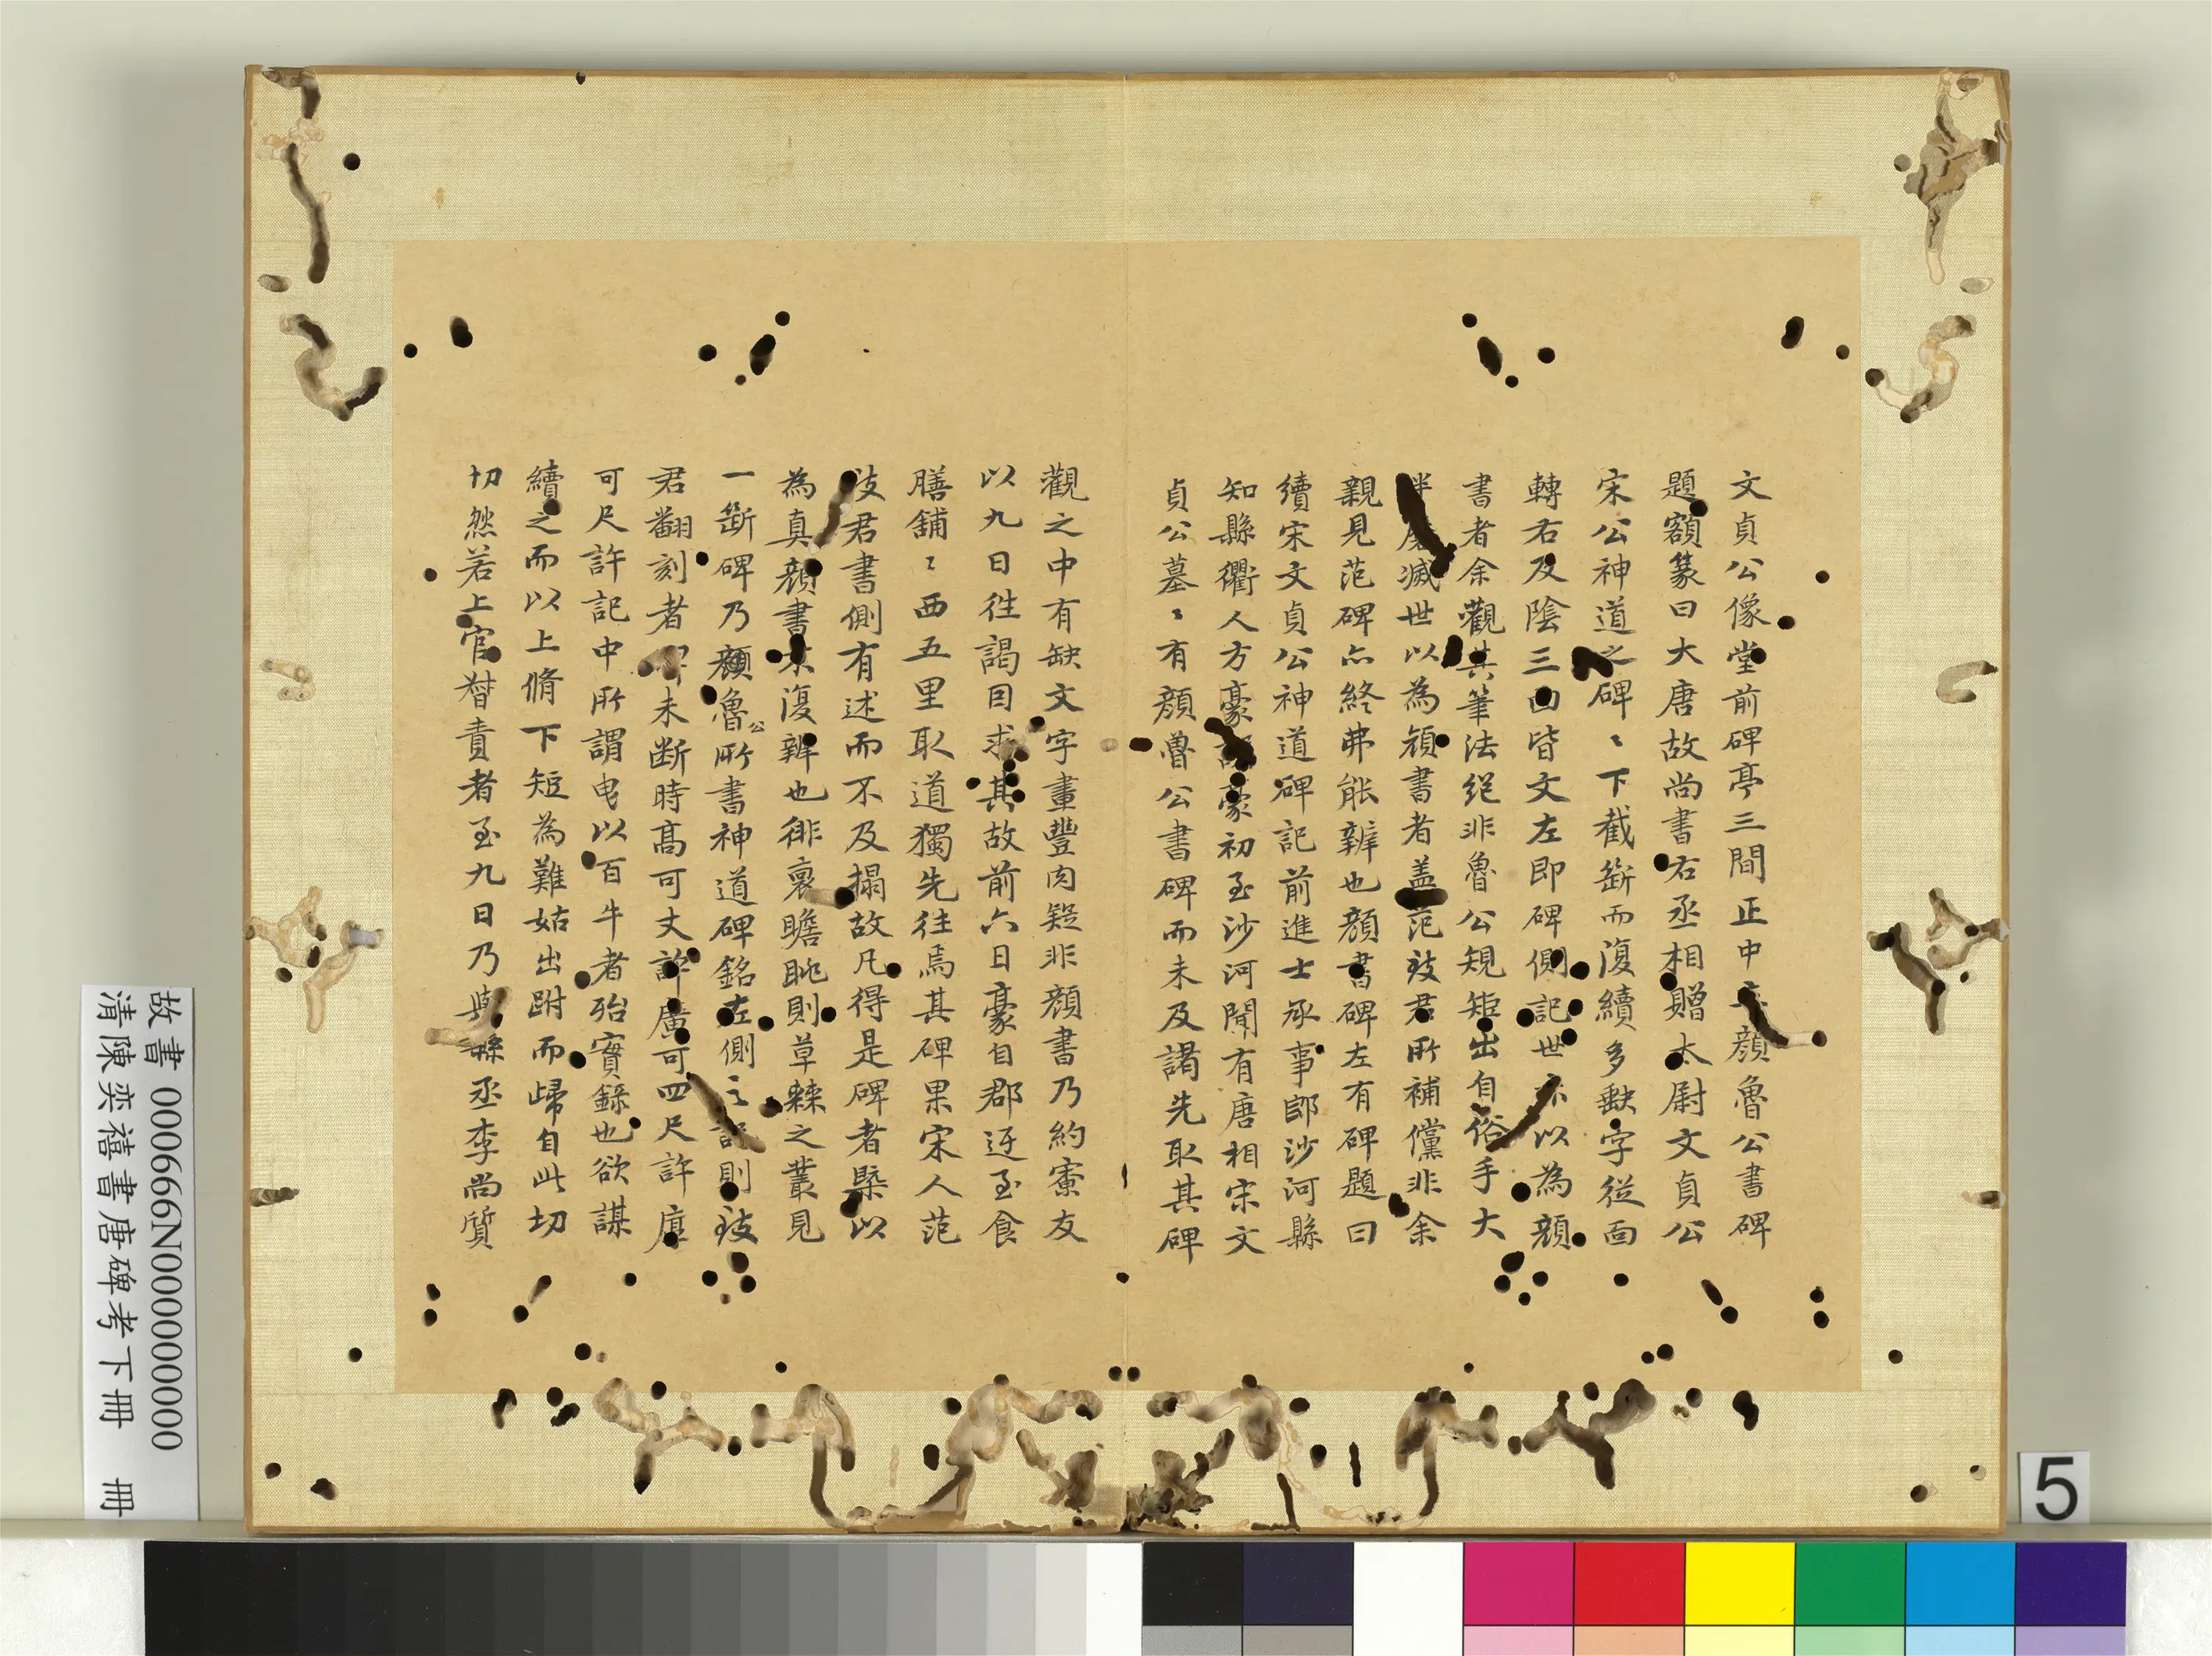 文貞公像堂前碑亭三間正中立顔魯公書碑
題額篆曰大唐故尚書右丞相贈太尉文貞公
宋公神道之碑〻下截斷而復續多缺字從面
轉右及陰三面皆文左即碑側記世亦以為顔
書者余觀其筆法絕非魯公規矩出自俗手大
半磨滅世以為顔書者盖范致君所補儻非余
親見范碑亦終弗能辨也顔書碑左有碑題曰
續宋文貞公神道碑記前進士承事郎沙河縣
知縣衢人方豪記豪初至沙河聞有唐相宋文
貞公墓〻有顔魯公書碑而未及謁先取其碑
觀之中有缺文字畫豐肉疑非顔書乃約寮友
以九日往謁目求其故前六日豪自郡迓至食
膳鋪〻西五里取道獨先往焉其碑果宋人范
致君書側有述而不及搨故凡得是碑者槩以
為真顔書未復辨也徘褱瞻眺則草棘之叢見
一斷碑乃顔魯公所書神道碑銘左側之記則致
君翻刻者碑未斷時高可丈許廣可四尺許厚
可尺許記中所謂曳以百牛者殆實錄也欲謀
續之而以上脩下短為難姑出跗而歸自此切
切然若上官督責者至九日乃與縣丞李尚質
故書 000666N000000000
清陳奕禧書唐碑考下冊 冊
5